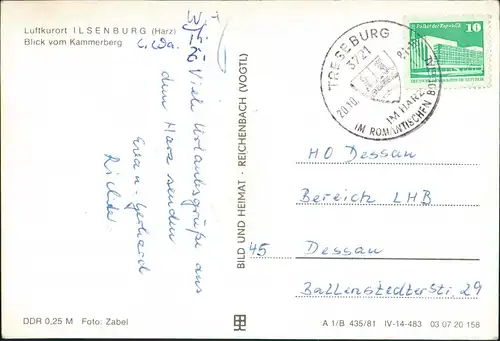 Luftkurort ILSENBURG (Harz)
Blick vom Kammerberg
Viele Urlaubsgrüße aus
dem Harz senden
Eva u. Gerhard
Richter
BILD UND HEIMAT · REICHENBACH (VOGTL)
TRESEBURG
3721
20.10.
IM HARZ
IM ROMANTISCHEN BODETAL
Palast der Republik
10
HO Dessau
Bereich LHB
45 Dessau
Ballenstedterstr. 29
DDR 0,25 M Foto: Zabel
A 1/B 435/81 IV-14-483 03 07 20 158